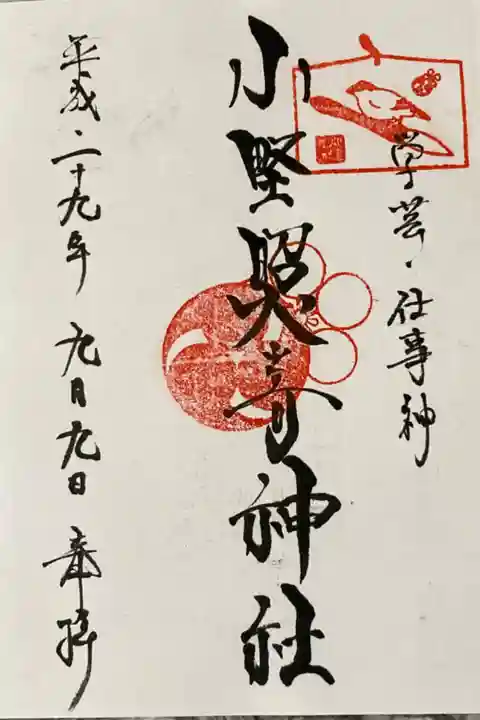 学芸・仕事神
小野照崎神社
平成・二十九年 九月九日 奉拝